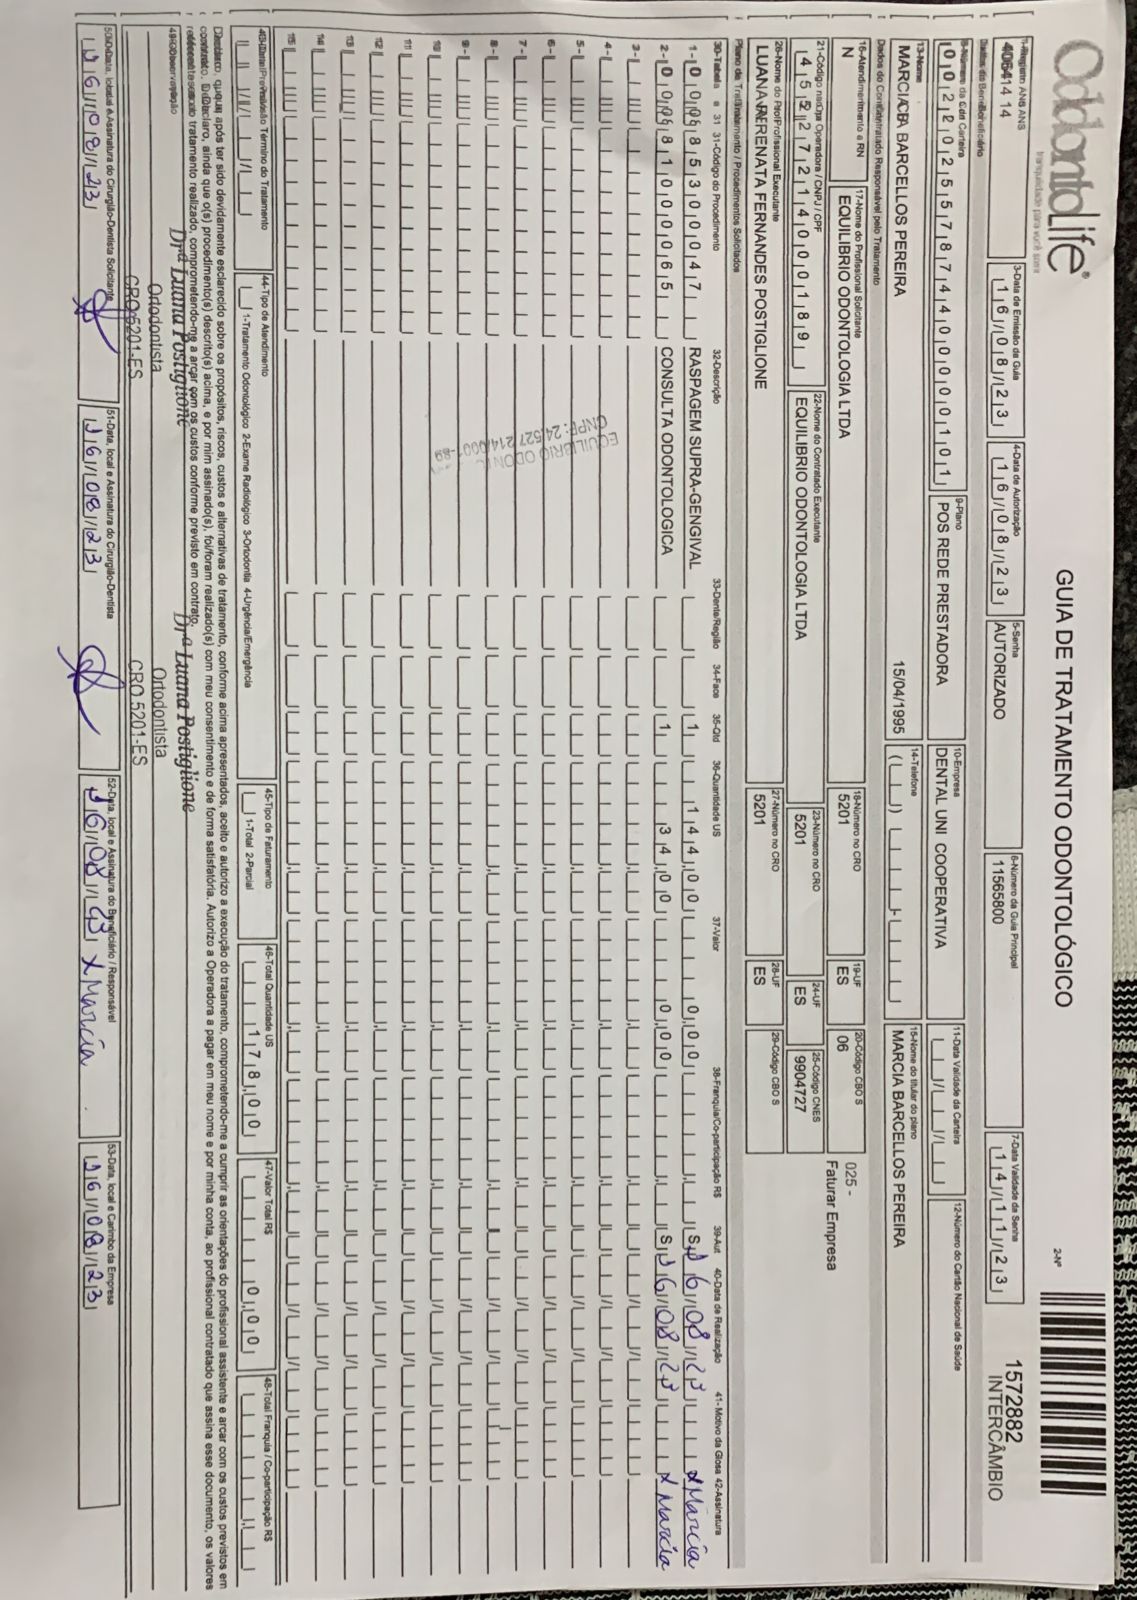 OdontoLife®
tranquilidade para você sorrir
GUIA DE TRATAMENTO ODONTOLÓGICO
2-Nº
1572882
INTERCÂMBIO
1-Registro ANS
406414 14
3-Data de Emissão da Guia
16/08/23
4-Data de Autorização
16/08/23
5-Senha
AUTORIZADO
6-Número da Guia Principal
11565800
7-Data Validade da Senha
14/11/23
Dados do Beneficiário
8-Número da Carteira
9-Plano
POS REDE PRESTADORA
10-Empresa
DENTAL UNI COOPERATIVA
11-Data Validade da Carteira
12-Número do Cartão Nacional de Saúde
13-Nome
MARCIA BARCELLOS PEREIRA
15/04/1995
14-Telefone
15-Nome do titular do plano
MARCIA BARCELLOS PEREIRA
Dados do Contratado Responsável pelo Tratamento
16-Atendimento a RN
N
17-Nome do Profissional Solicitante
EQUILIBRIO ODONTOLOGIA LTDA
18-Número no CRO
5201
19-UF
ES
20-Código CBO S
06
025 -
Faturar Empresa
21-Código na Operadora / CNPJ / CPF
22-Nome do Contratado Executante
EQUILIBRIO ODONTOLOGIA LTDA
23-Número no CRO
5201
24-UF
ES
25-Código CNES
9904727
26-Nome do Profissional Executante
LUANA RENATA FERNANDES POSTIGLIONE
27-Número no CRO
5201
28-UF
ES
29-Código CBO S
Plano de Tratamento / Procedimentos Solicitados
30-Tabela 31-Código do Procedimento 32-Descrição 33-Dente/Região 34-Face 35-Qtd 36-Quantidade US 37-Valor 38-Franquia/Co-participação R$ 39-Aut 40-Data de Realização 41-Motivo da Glosa 42-Assinatura
1- 85300047 RASPAGEM SUPRA-GENGIVAL 1 144,00 0,00 S 16/08/23 x Marcia
2- 81000065 CONSULTA ODONTOLOGICA 1 34,00 0,00 S 16/08/23 x Marcia
3-
4-
5-
6-
7-
8-
9-
10
11
12
13
14
15
EQUILIBRIO ODON
CNPF: 24.527.214/0001-89
43-Data Previsão Término do Tratamento
44-Tipo de Atendimento
1-Tratamento Odontológico 2-Exame Radiológico 3-Ortodontia 4-Urgência/Emergência
45-Tipo de Faturamento
1-Total 2-Parcial
46-Total Quantidade US
178,00
47-Valor Total R$
0,00
48-Total Franquia / Co-participação R$
Declaro, que após ter sido devidamente esclarecido sobre os propósitos, riscos, custos e alternativas de tratamento, conforme acima apresentados, aceito e autorizo a execução do tratamento, comprometendo-me a cumprir as orientações do profissional assistente e arcar com os custos previstos em
contrato. Declaro, ainda que o(s) procedimento(s) descrito(s) acima, e por mim assinado(s), foi/foram realizado(s) com meu consentimento e de forma satisfatória. Autorizo a Operadora a pagar em meu nome e por minha conta, ao profissional contratado que assina esse documento, os valores
referentes ao tratamento realizado, comprometendo-me a arcar com os custos conforme previsto em contrato.
49-Observação
Drª Luana Postiglione
Ortodontista
CRO 5201-ES
Drª Luana Postiglione
Ortodontista
CRO 5201-ES
50-Data, local e Assinatura do Cirurgião-Dentista Solicitante
16/08/23
51-Data, local e Assinatura do Cirurgião-Dentista
16/08/23
52-Data, local e Assinatura do Beneficiário / Responsável
16/08/23 x Marcia
53-Data, local e Carimbo da Empresa
16/08/23